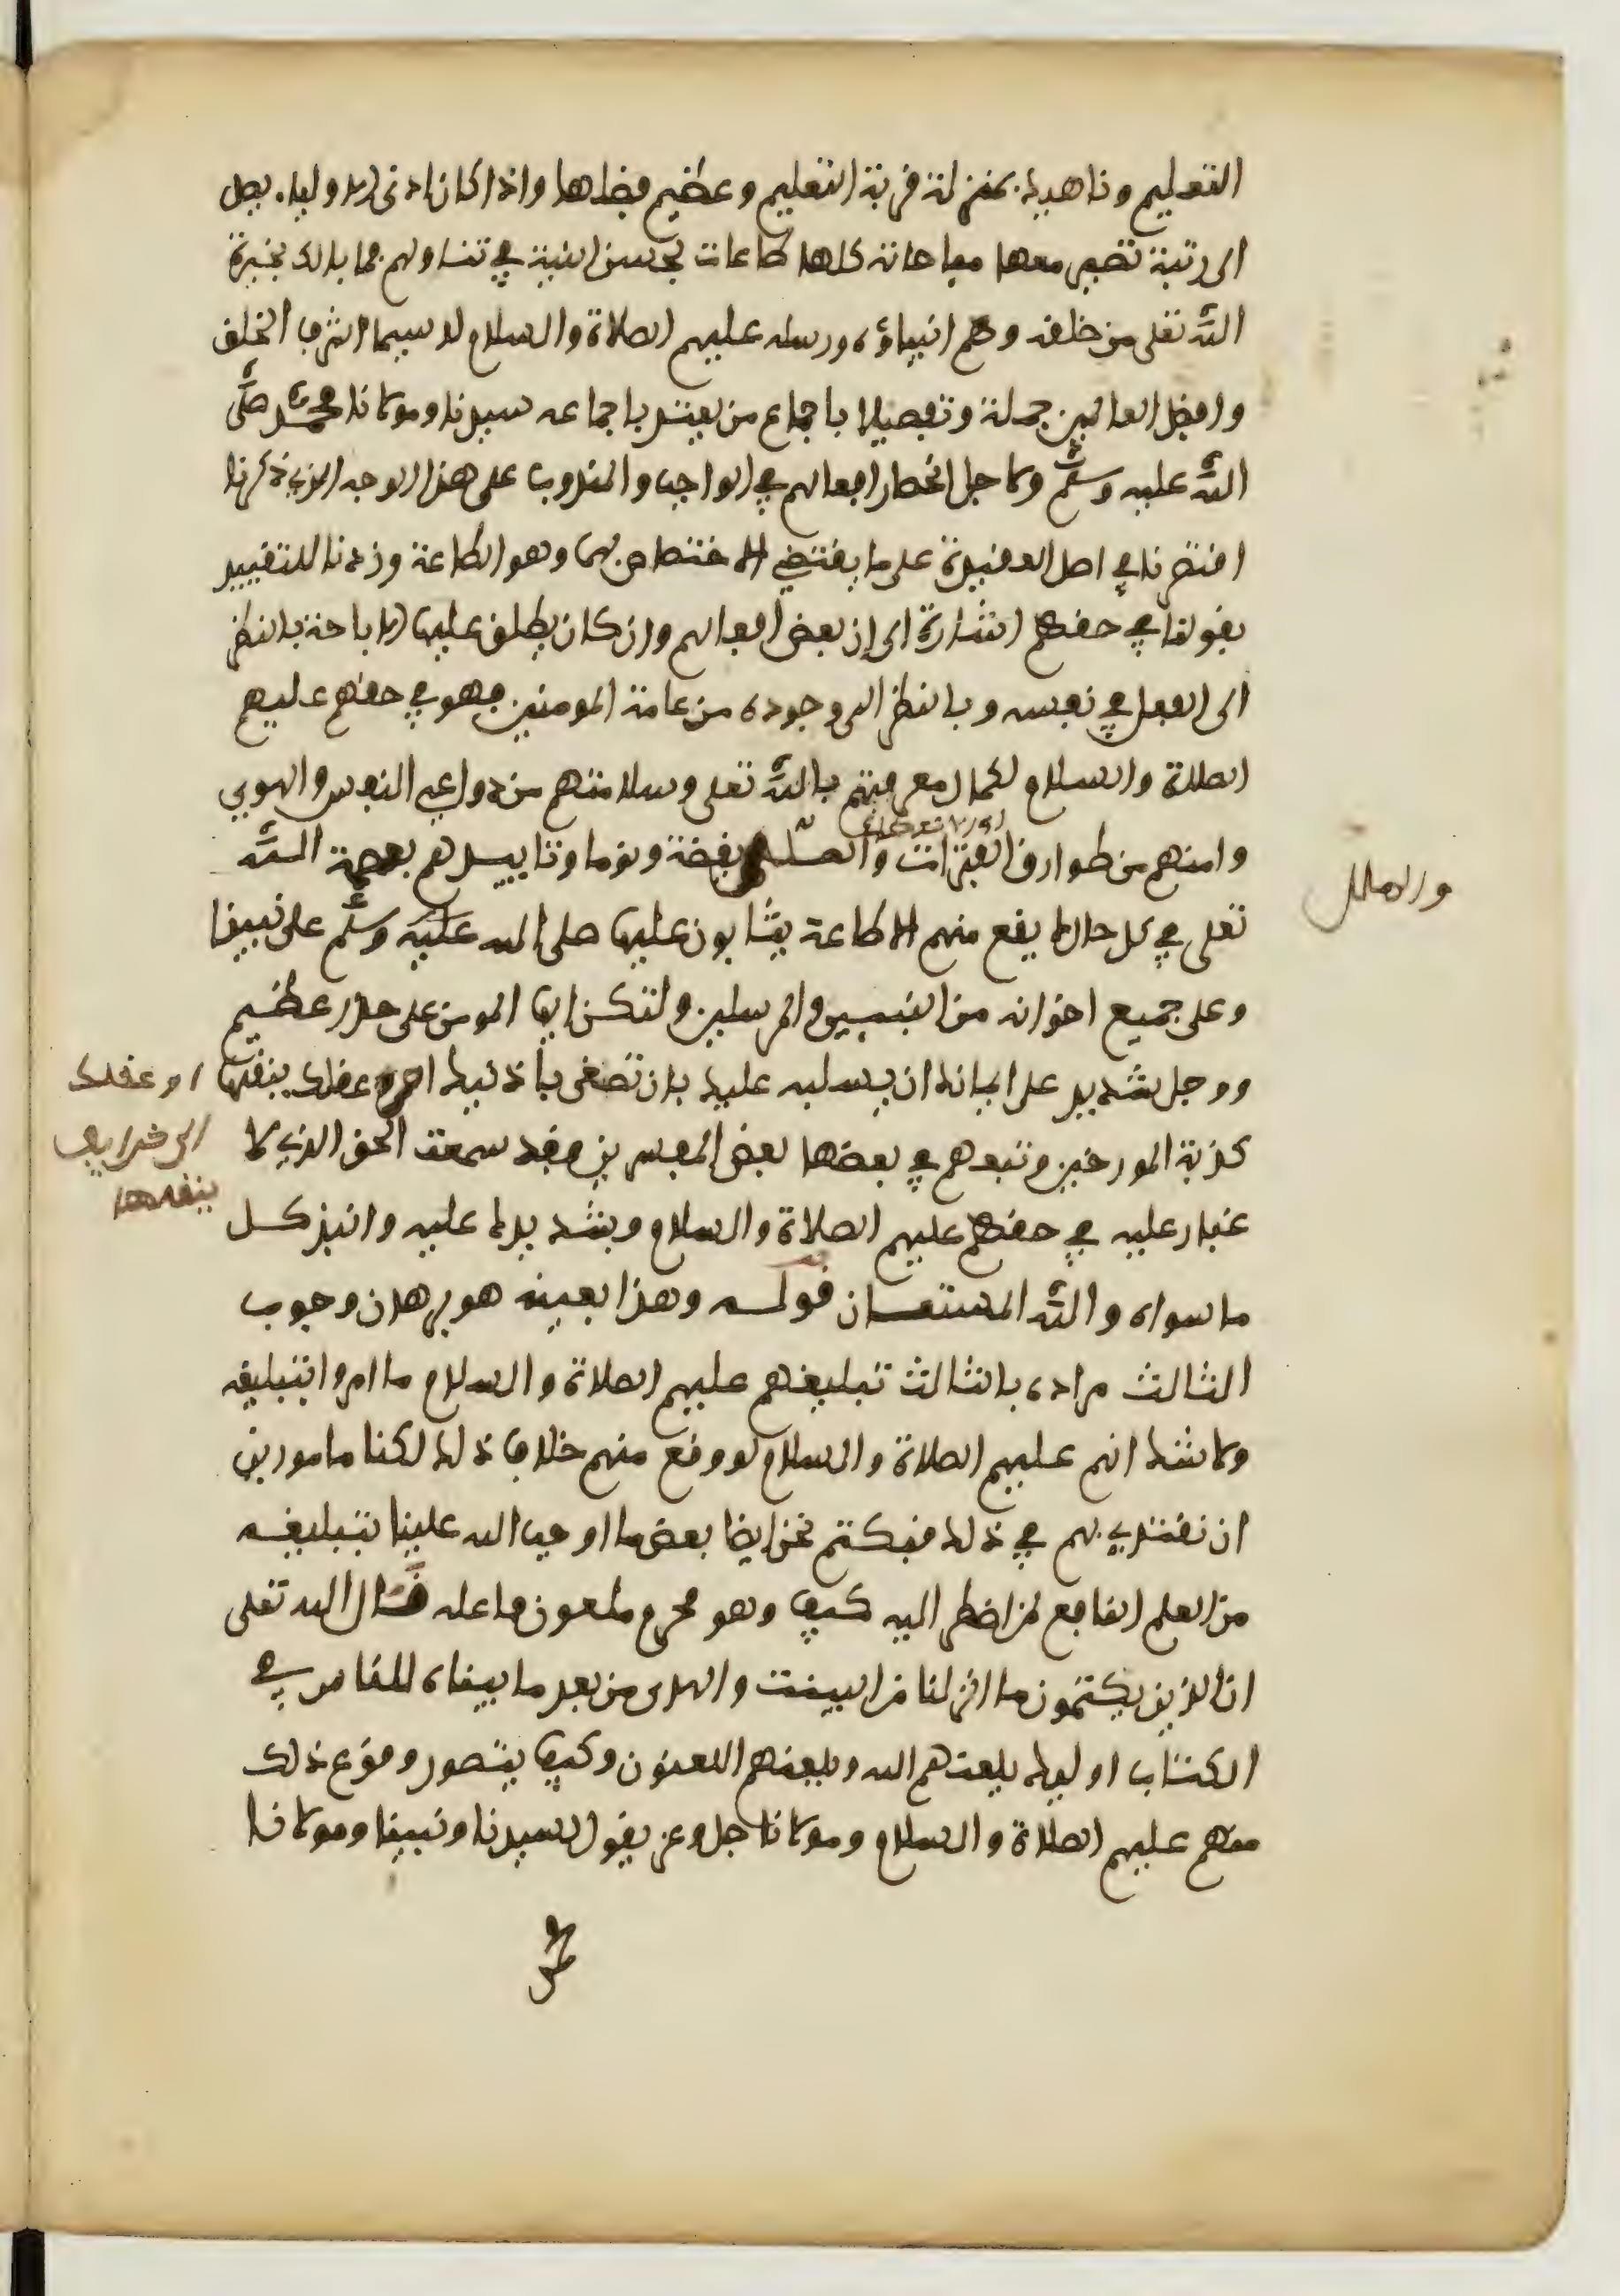 التعليم وناهيك بمنزلة قربة التعليم وعظيم فضلها واذا كان ادنى الاولياء يصل
الى رتبة تصير معها مباحاته كلها طاعات بحسن النية في تناولهم فما بالك بخيرة
الله تعلى من خلقه وهم انبياؤه ورسله عليهم الصلاة والسلام لا سيما اشرف الخلق
وافضل العالمين جملة وتفصيلا باجماع من يعتد باجماعه سيدنا ومولانا محمد صلى
الله عليه وسلم ولاجل انحصار افعالهم في الواجب والمندوب على هذا الوجه الذي ذكرنا
اقتصرنا في اصل العقيدة على ما يقتضي الاختصاص بهما وهو الطاعة وزدنا للتقييد
بقولنا في حقهم اشارة الى ان بعض افعالهم وان كان يطلق عليها الاباحة بالنظر
الى الفعل في نفسه وبالنظر الى وجوده من عامة المومنين فهو في حقهم عليهم
الصلاة والسلام لكمال معرفتهم بالله تعلى وسلامتهم من دواعي النفس والهوى
وامنهم من طوارق الفترات والملل يقضة ونوما وتاييدهم بعصمة الله
والملل
تعلى في كل حال لا يقع منهم الا طاعة يثابون عليها صلى الله عليه وسلم على نبينا
وعلى جميع اخوانه من النبيين والمرسلين ولتكن ايها المومن على حذر عظيم
ووجل شديد على ايمانك ان يسلب عليك بان تصغى باذنيك او عقلك ينقلها
او عقلك
الى خرايف
ينقلها
كذبة المورخين وتبعهم في بعضها بعض المفسرين فقد سمعت الحق الذي لا
غبار عليه في حقهم عليهم الصلاة والسلام وبشد يدك عليه وانبذ كل
ما سواه والله المستعان قوله وهذا بعينه هو برهان وجوب
الثالث مراده بالثالث تبليغهم عليهم الصلاة والسلام ما امروا بتبليغه
ولا شك انهم عليهم الصلاة والسلام لو وقع منهم خلاف ذلك لكنا مامورين
ان نقتدي بهم في ذلك فنكتم نحن ايضا بعض ما اوجب الله علينا بتبليغه
من العلم النافع لمن اضطر اليه كيف وهو محرم ملعون فاعله قال الله تعلى
ان الذين يكتمون ما انزلنا من البينت والهدى من بعد ما بيناه للناس في
الكتاب اوليك يلعنهم الله ويلعنهم اللعنون وكيف يتصور وقوع ذلك
منهم عليهم الصلاة والسلام ومولانا جل وعز يقول لسيدنا ونبينا ومولانا